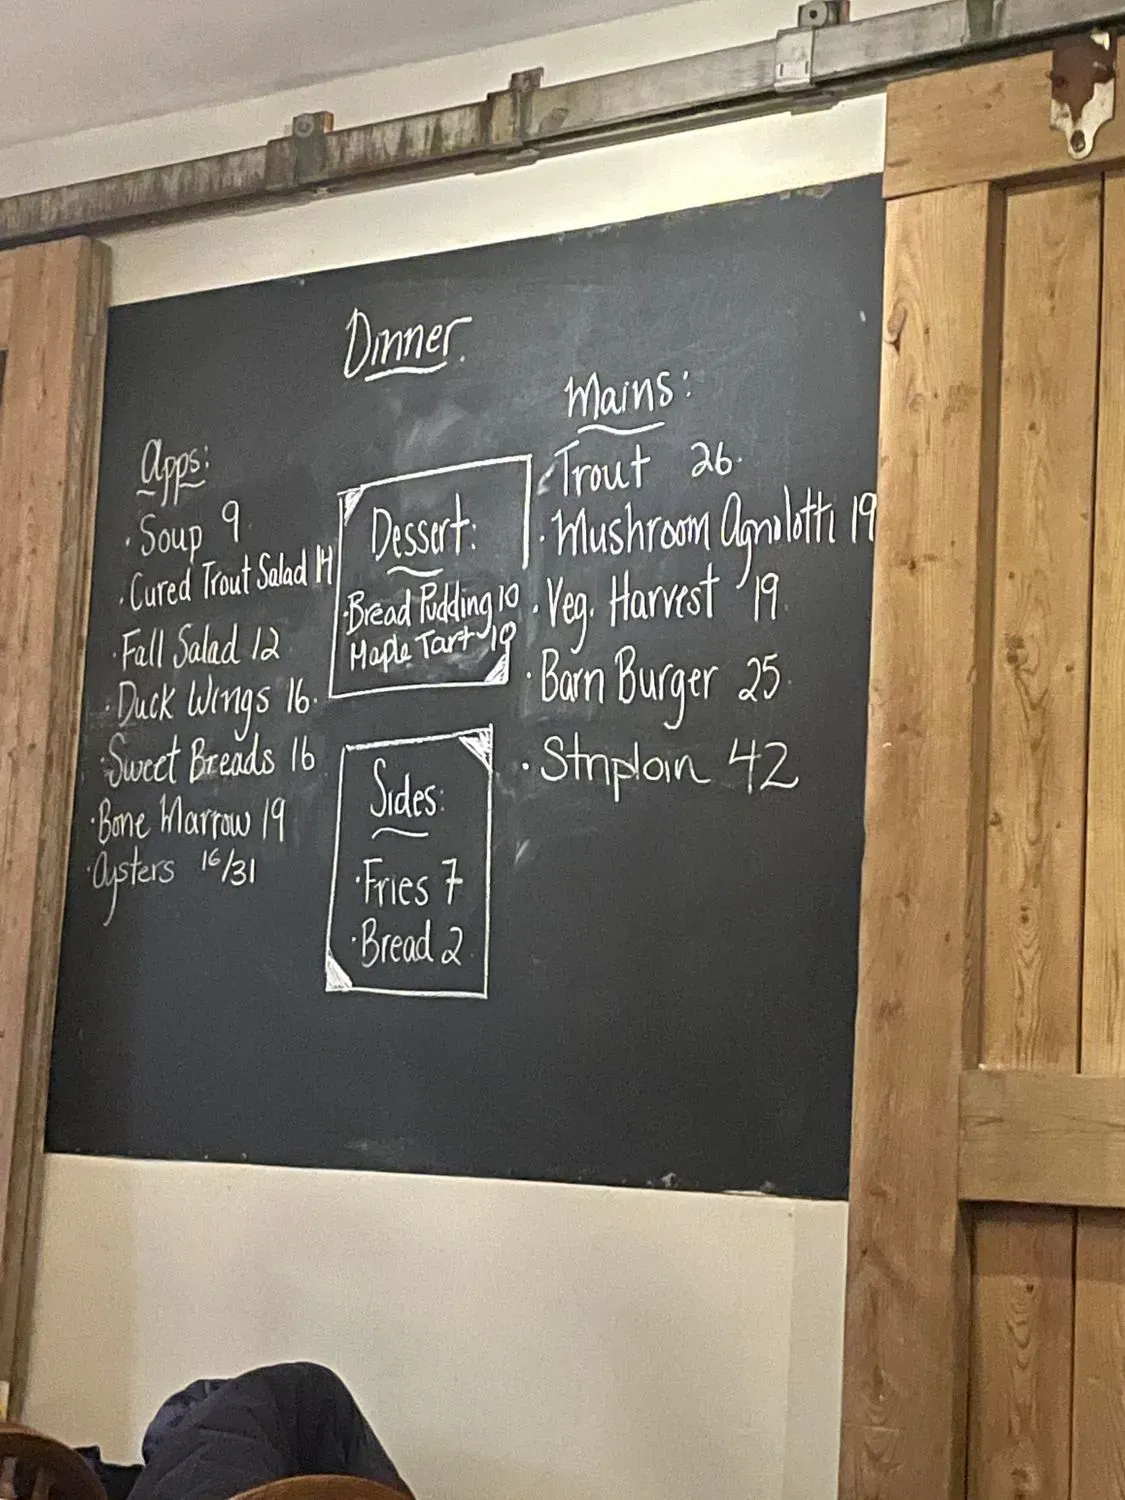 Dinner
Apps:
· Soup 9
· Cured Trout Salad 14
· Fall Salad 12
· Duck Wings 16
· Sweet Breads 16
· Bone Marrow 19
· Oysters 16/31
Dessert:
· Bread Pudding 10
Maple Tart 10
Sides:
· Fries 7
· Bread 2
Mains:
· Trout 26
· Mushroom Agnolotti 19
· Veg. Harvest 19
· Barn Burger 25
· Striploin 42